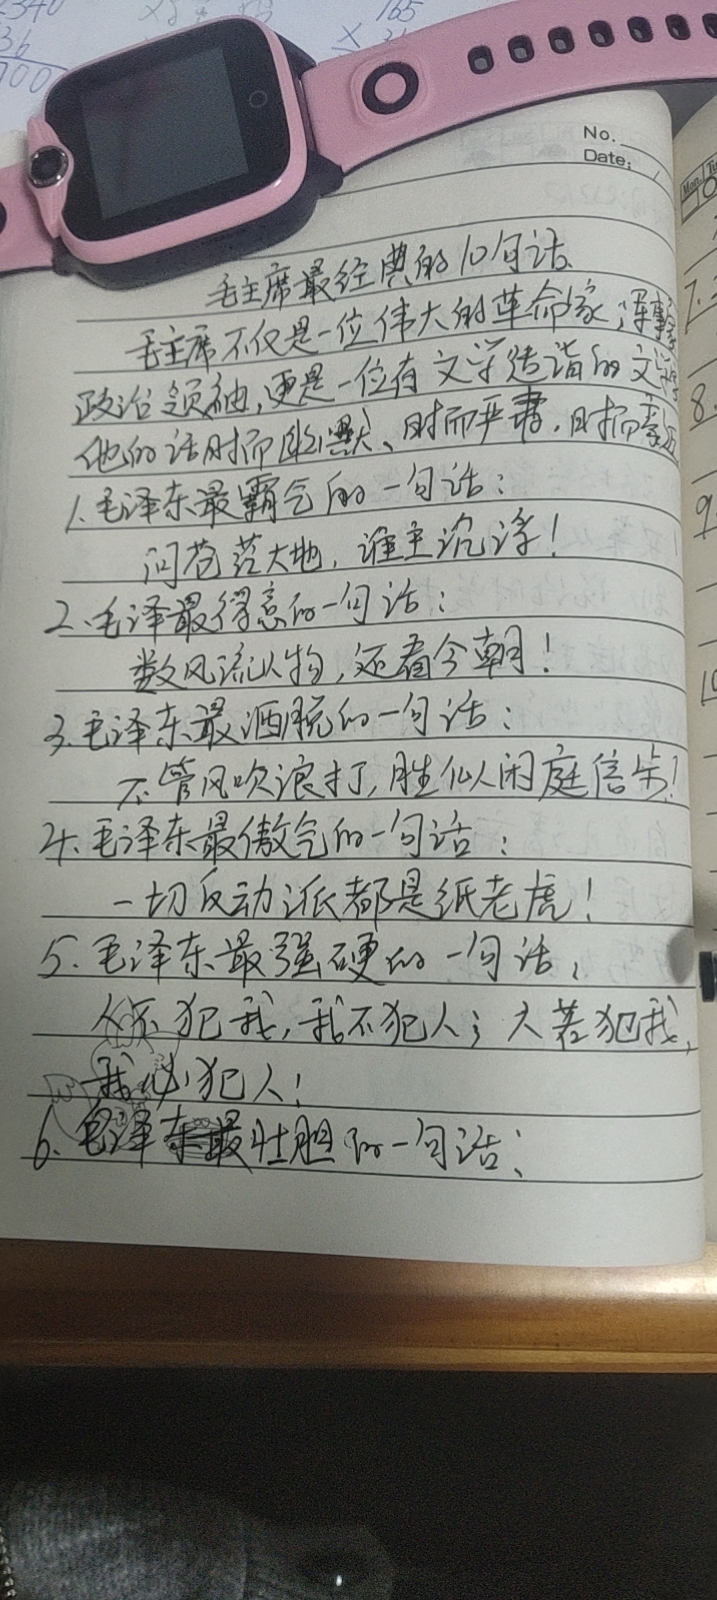 2340
165
36
000
No.
Date:
Mon.
毛主席最经典的10句话
毛主席不仅是一位伟大的革命家,军事家
政治领袖,更是一位有文学造诣的文学
他的话时而幽默、时而严肃,时而豪迈
1.毛泽东最霸气的一句话:
问苍茫大地,谁主沉浮!
2.毛泽最得意的一句话:
数风流人物,还看今朝!
3.毛泽东最洒脱的一句话:
不管风吹浪打,胜似人闲庭信步!
4.毛泽东最傲气的一句话:
一切反动派都是纸老虎!
5.毛泽东最强硬的一句话:
人不犯我,我不犯人;大若犯我,
我必犯人!
6.毛泽东最壮胆的一句话:
7.
8.
9
10